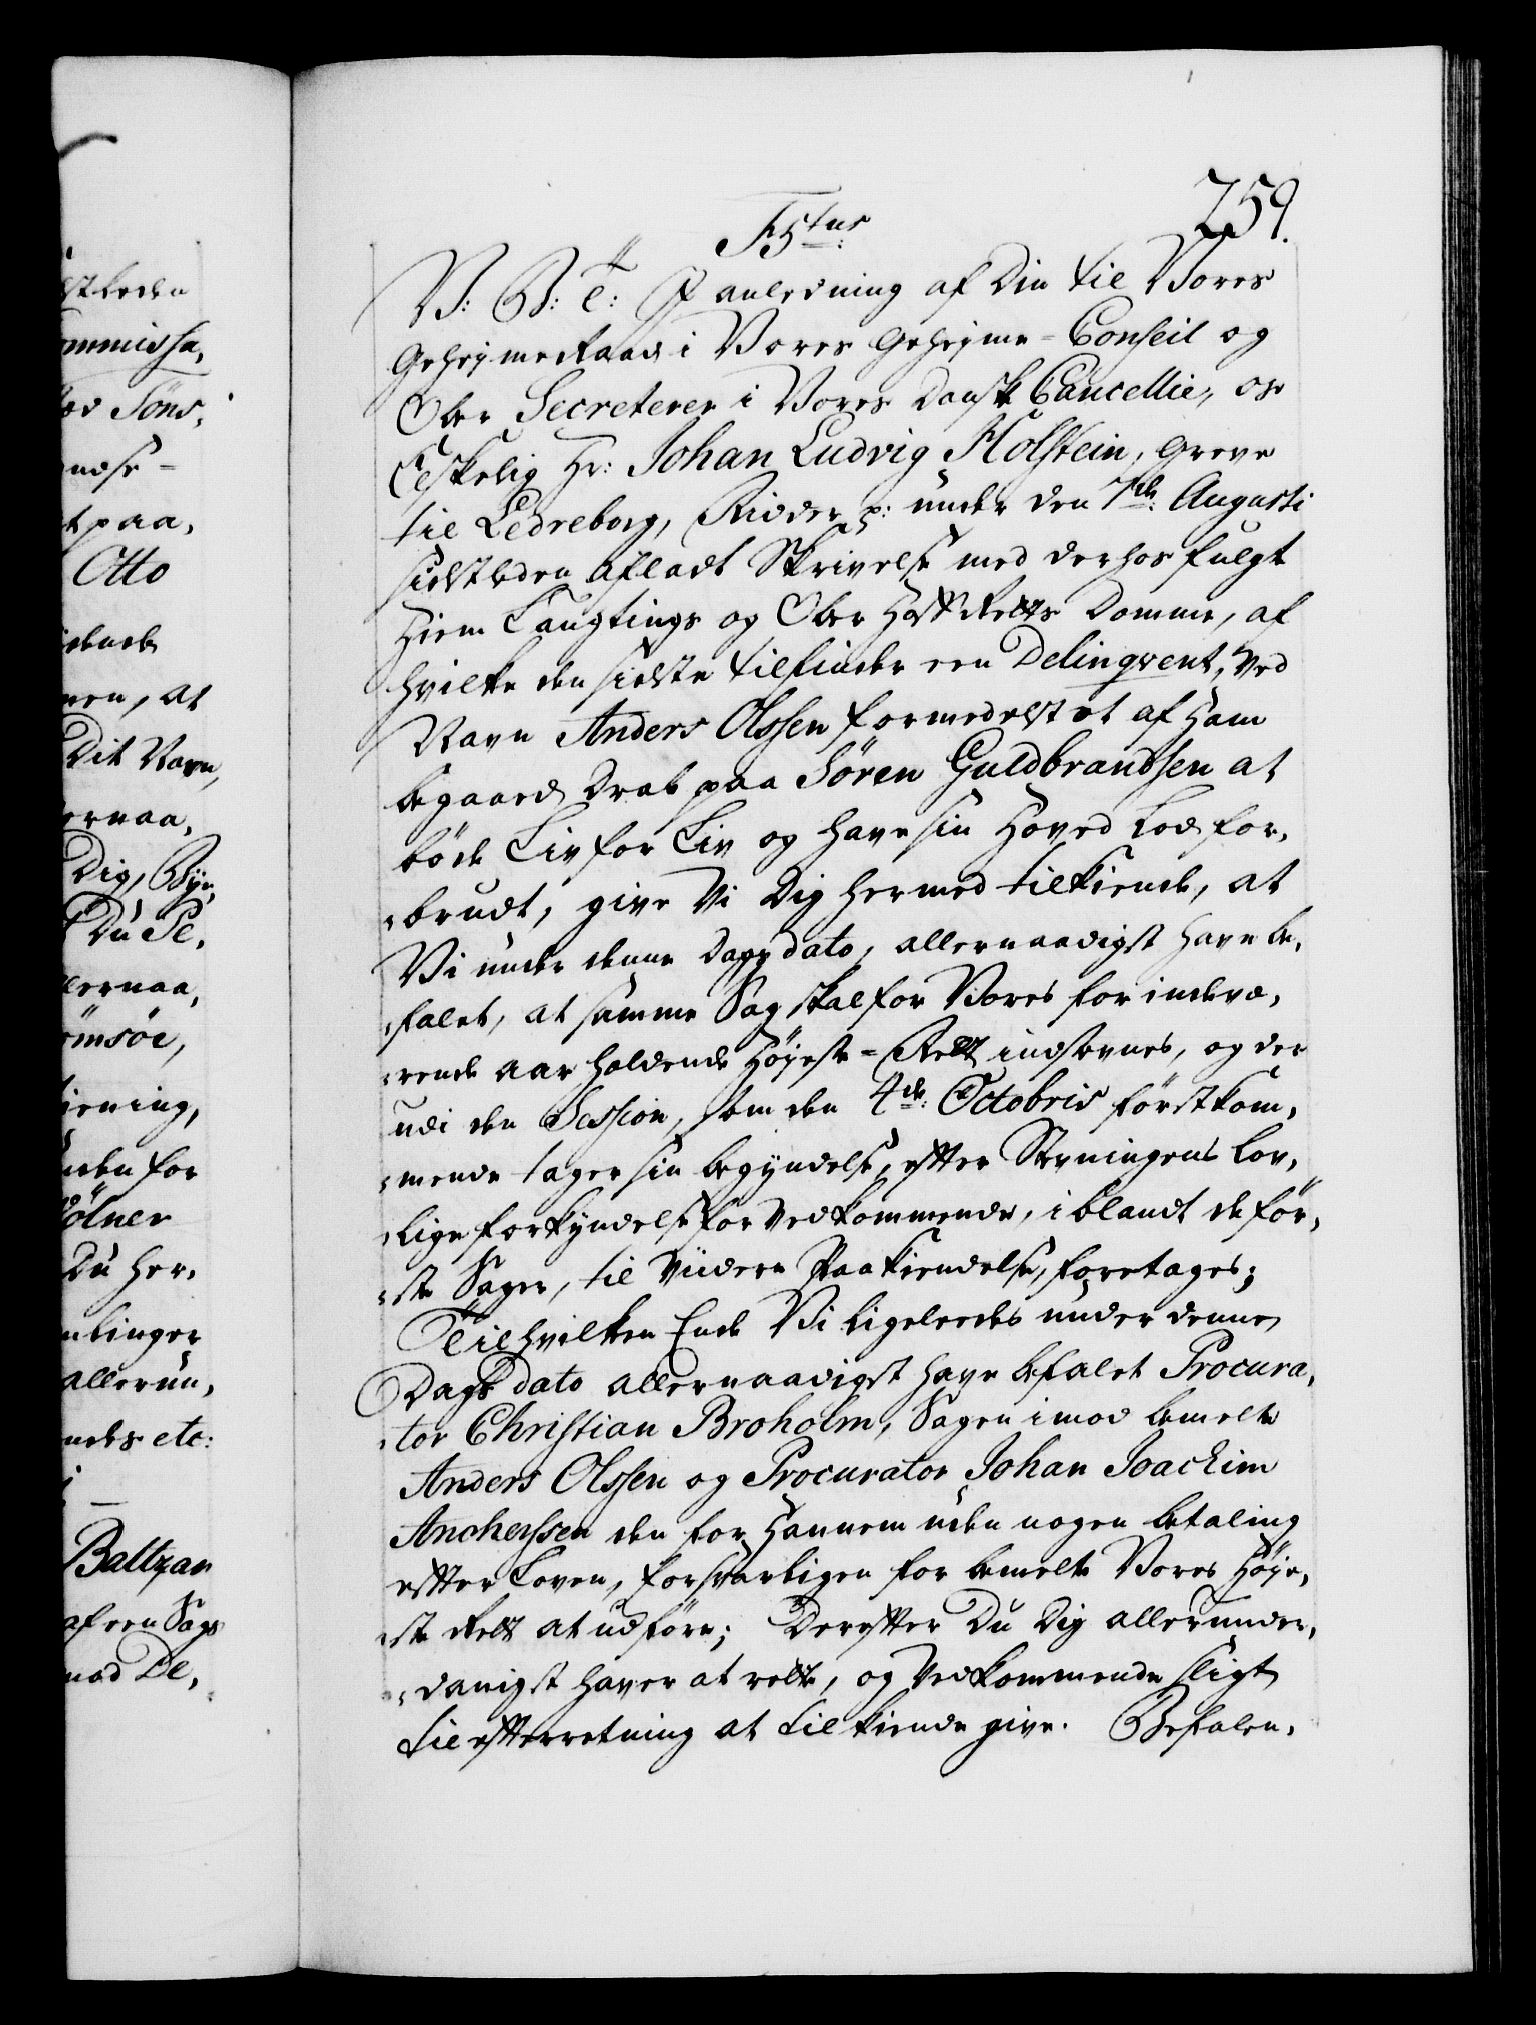 259.
F5tus
V: G: T: I anledning af Din til Vores
Geheimeraad i Vores Geheime-Conseil og
Ober Secreterer i Vores Danske Cancellie, os
Elskelig Hr: Johan Ludvig Holstein, Greve
til Ledreborg, Ridder p: under den 7de Augusti
sidstleden afladt Skrivelse med derhos fulgt
Hiem Laugtings og Ober Hoff Retts Domme, af
hvilke den sidste tilfinder een Delinqvent, ved
Navn Anders Olssen formedelst et af Ham
begaaed Drab paa Sören Guldbrandsen at
böde Liv for Liv og have sin Hoved Lod for,
,brudt, give Vi Dig hermed tilkiende, at
Vi under denne Dags dato, allernaadigst have be,
,falet, at samme Sag skal for Vores for indevæ,
,rende aar holdende Höyeste-Rett indstevnes, og der
udi den Session, som den 4de: Octobris förstkom,
,mende tager sin begyndelse, efter Stevningens lov,
,lige forkyndelse for Vedkommende, i blandt de för,
,ste Sager, til viidere Paakiendelse, foretages;
Til hvilken Ende Vi ligeleedes under denne
Dags dato allernaadigst have befalet Procura,
,tor Christian Broholm, Sagen imod bemelte
Anders Olssen og Procurator Johan Joachim
Anchersen den for Hannem uden nogen betaling
efter Loven, forsvarligen for bemelte Vores Höye,
,ste Rett at udföre; Derefter Du Dig allerunder,
,danigst haver at rette, og Vedkommende sligt
til efterretning at tilkiende give. Befalen,
stleden
ommissa,
Otto
nen, at
Dit Navn,
ernaa,
Dig,
Du
lernaa,
ömsöe,
iening,
uden for
ölner
Du her,
allerun,
etc:
Baltzar
af een Sags
mod De,